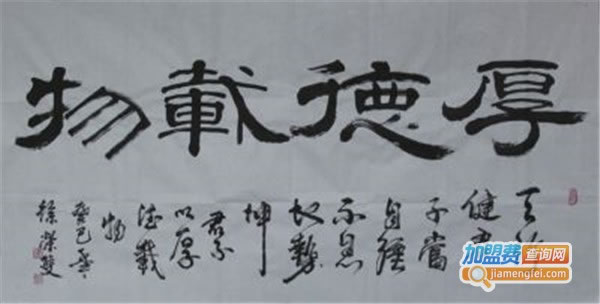 厚德載物
天行
健君
子當
自強
不息
地勢
坤
君子
以厚
德載
物
癸巳
徐榮雙
加盟费查询网
jiamengfei.com